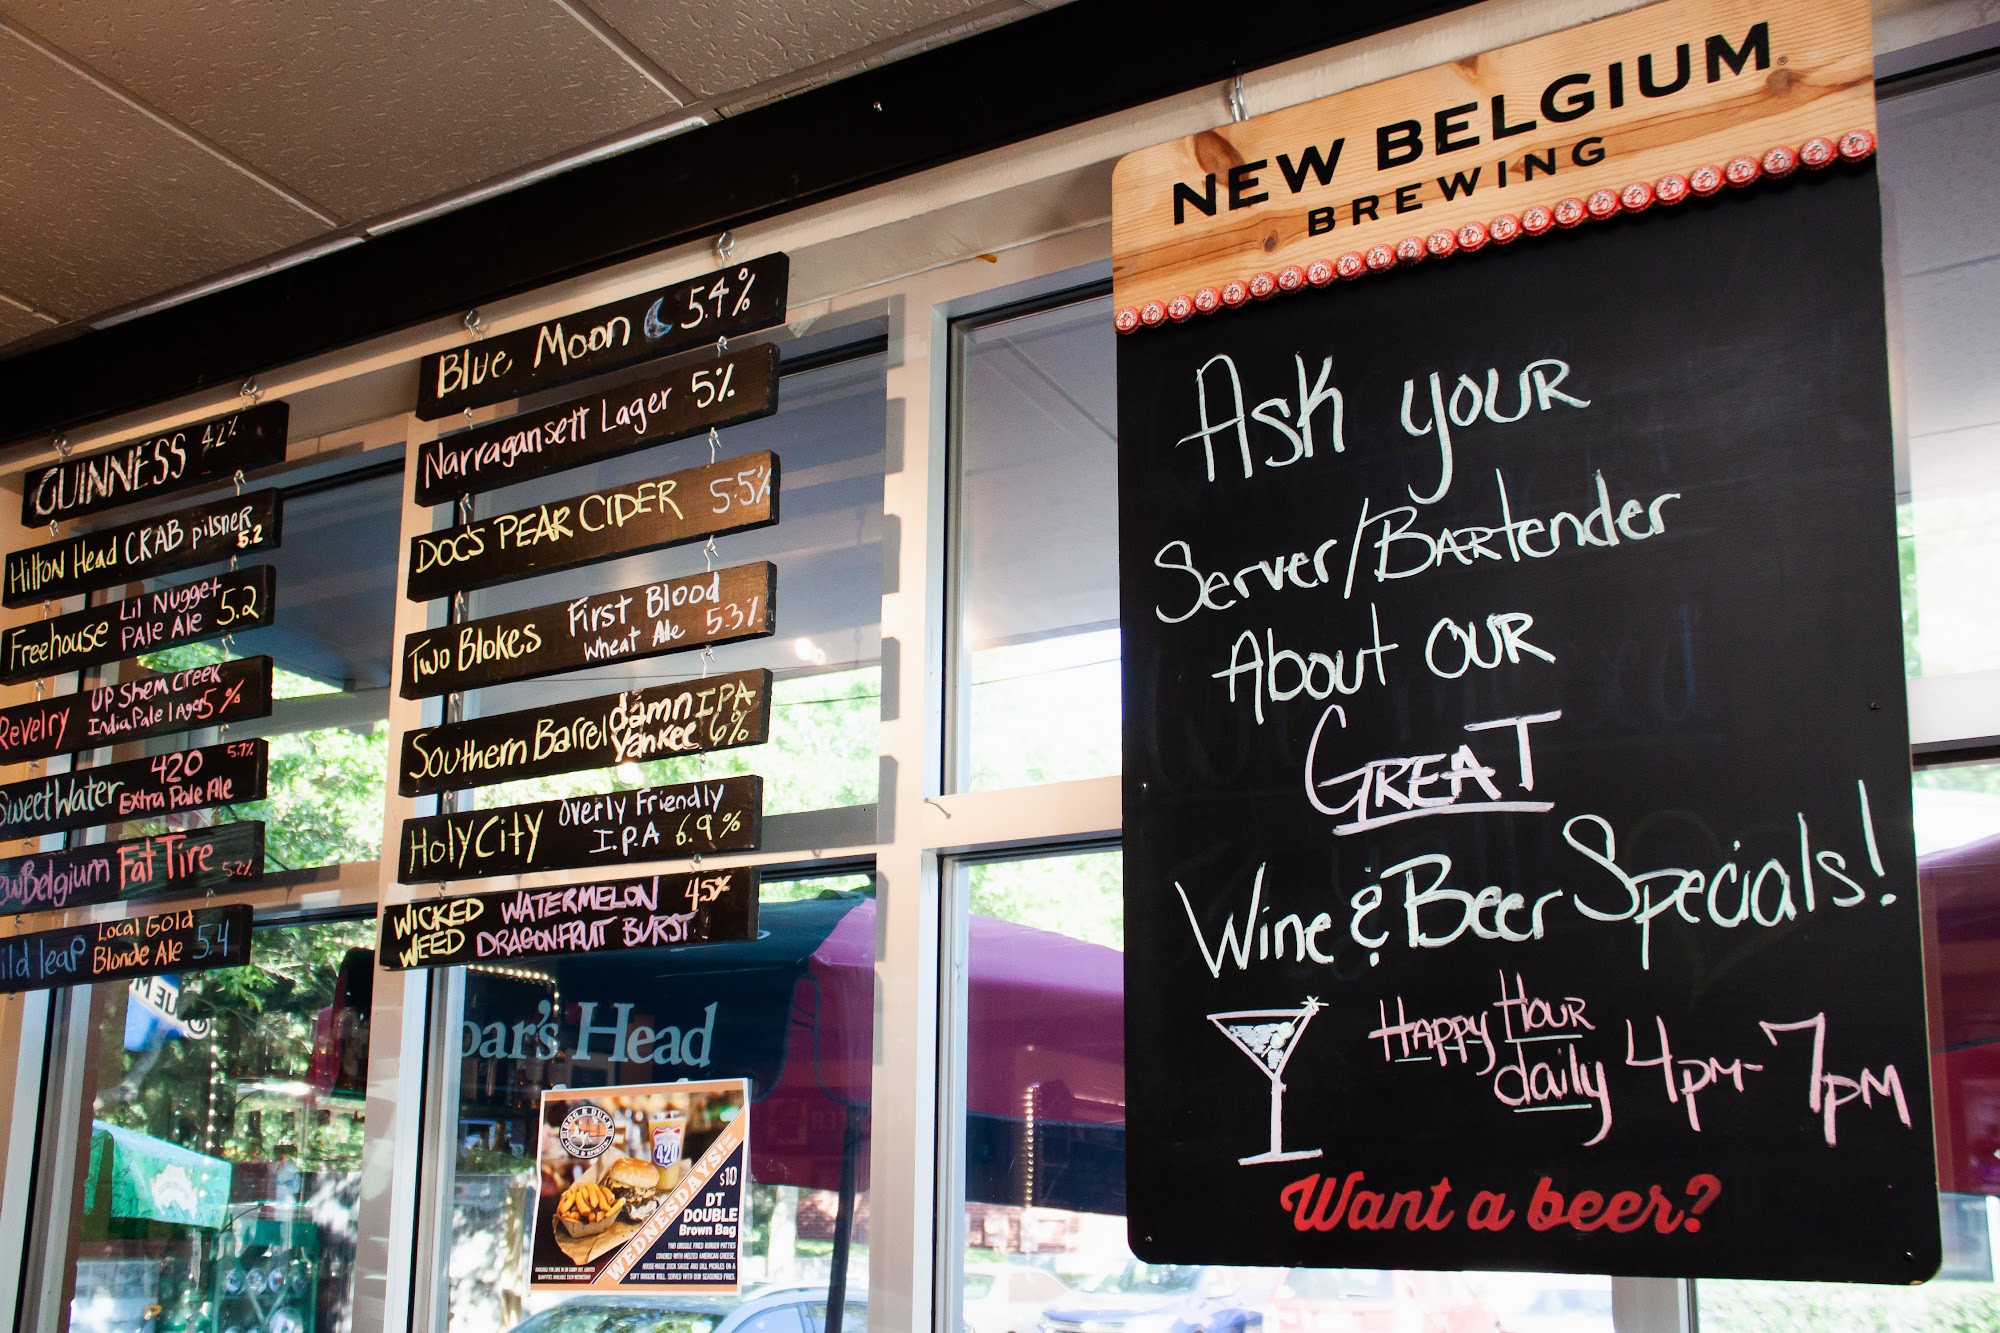 GUINNESS 4.2%
Hilton Head CRAB pilsner 5.2
Freehouse Lil Nugget Pale Ale 5.2
Revelry Up Shem Creek India Pale Lager 5%
SweetWater 420 Extra Pale Ale 5.7%
ewBelgium Fat Tire 5.2%
ild leap Local Gold Blonde Ale 5.4
Blue Moon 5.4%
Narragansett Lager 5%
DOC'S PEAR CIDER 5.5%
Two Blokes First Blood Wheat Ale 5.3%
Southern Barrel damn yankee IPA 6%
Holy City Overly Friendly I.P.A 6.9%
WICKED WEED WATERMELON DRAGONFRUIT BURST 4.5%
oar's Head
420
WEDNESDAYS!
$10
DT
DOUBLE
Brown Bag
TWO GRIDDLE FRIED BURGER PATTIES
COVERED WITH MELTED AMERICAN CHEESE,
HOUSE-MADE DUCK SAUCE AND DILL PICKLES ON A
SOFT BRIOCHE ROLL. SERVED WITH OUR SEASONED FRIES.
NEW BELGIUM
BREWING
Ask your
Server/Bartender
About our
GREAT
Wine & Beer Specials!
Happy Hour
daily 4pm-7pm
Want a beer?